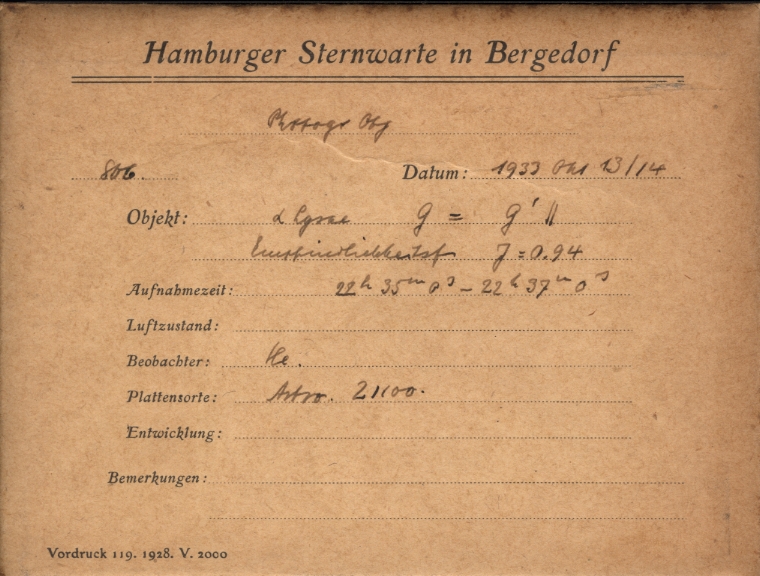 Hamburger Sternwarte in Bergedorf
Photogr Obj
806. Datum: 1933 Okt 13/14
Objekt: α Lyrae g = g' ||
Empfindlichkeitsf J = 0.94
Aufnahmezeit: 22h 35m 0s – 22h 37m 0s
Luftzustand:
Beobachter: He.
Plattensorte: Astro. 21100.
Entwicklung:
Bemerkungen:
Vordruck 119. 1928. V. 2000